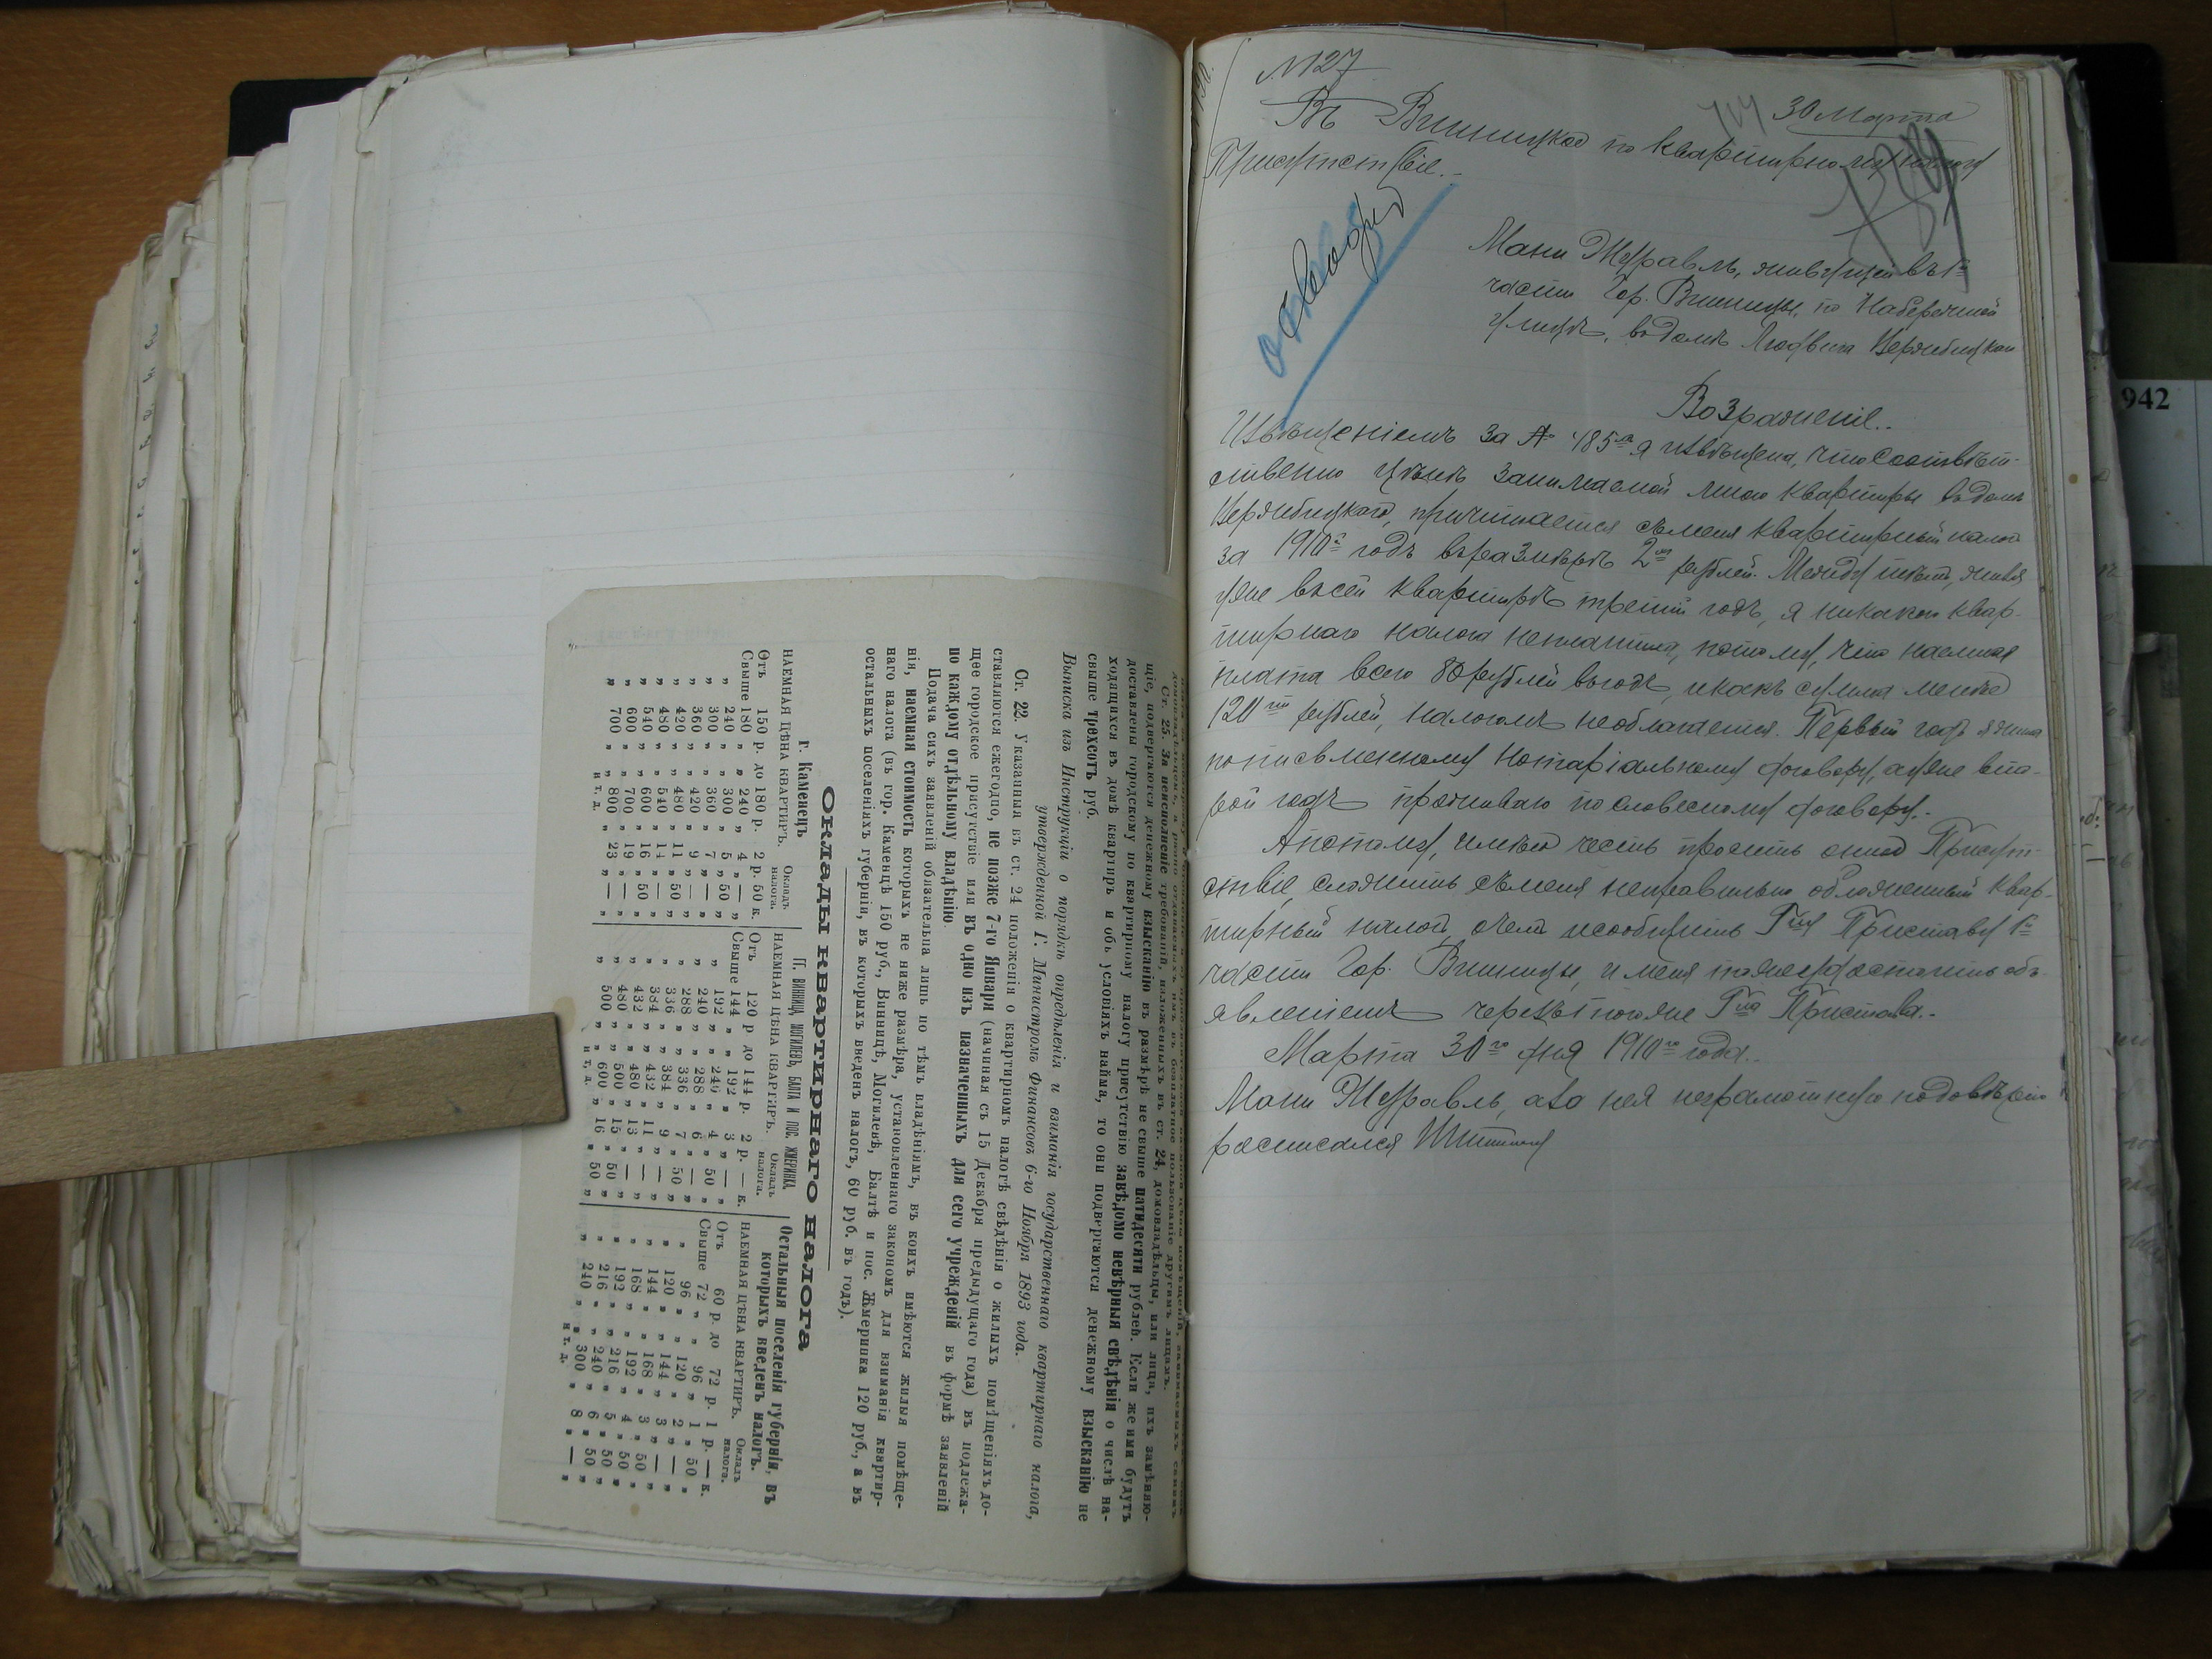 Ст. 25. За неисполненіе требованій, изложенныхъ въ ст. 24, домовладѣльцы, или лица, ихъ замѣняю-
щіе, подвергаются денежному взысканію въ размѣрѣ не свыше пятидесяти рублей. Если же ими будутъ
доставлены городскому по квартирному налогу присутствію завѣдомо невѣрныя свѣдѣнія о числѣ на-
ходящихся въ домѣ квартиръ и объ условіяхъ найма, то они подвергаются денежному взысканію не
свыше трехсотъ руб.
Выписка изъ Инструкціи о порядкѣ опредѣленія и взиманія государственнаго квартирнаго налога,
утвержденной Г. Министромъ Финансовъ 6-го Ноября 1893 года.
Ст. 22. Указанныя въ ст. 24 положенія о квартирномъ налогѣ свѣдѣнія о жилыхъ помѣщеніяхъ до-
ставляются ежегодно, не позже 7-го Января (начиная съ 15 Декабря предыдущаго года) въ подлежа-
щее городское присутствіе или въ одно изъ назначенныхъ для сего учрежденій въ формѣ заявленій
по каждому отдѣльному владѣнію.
Подача сихъ заявленій обязательна лишь по тѣмъ владѣніямъ, въ коихъ имѣются жилыя помѣще-
нія, наемная стоимость которыхъ не ниже размѣра, установленнаго закономъ для взиманія квартир-
наго налога (въ гор. Каменцѣ 150 руб., Винницѣ, Могилевѣ, Балтѣ и пос. Жмеринка 120 руб., а въ
остальныхъ поселеніяхъ губерніи, въ которыхъ введенъ налогъ, 60 руб. въ годъ).
Оклады квартирнаго налога
г. Каменецъ
НАЕМНАЯ ЦѢНА КВАРТИРЪ. Окладъ налога.
Отъ 150 р. до 180 р. 2 р. 50 к.
Свыше 180 „ „ 240 „ 4 „ — „
„ 240 „ „ 300 „ 5 „ 50 „
„ 300 „ „ 360 „ 7 „ — „
„ 360 „ „ 420 „ 9 „ — „
„ 420 „ „ 480 „ 11 „ 50 „
„ 480 „ „ 540 „ 14 „ — „
„ 540 „ „ 600 „ 16 „ 50 „
„ 600 „ „ 700 „ 19 „ — „
„ 700 „ „ 800 „ 23 „ — „
и т. д.
ГГ. ВИННИЦА, МОГИЛЕВЪ, БАЛТА И ПОС. ЖМЕРИНКА.
НАЕМНАЯ ЦѢНА КВАРТИРЪ. Окладъ налога.
Отъ 120 р до 144 р. 2 р. — к.
Свыше 144 „ „ 192 „ 3 „ — „
„ 192 „ „ 240 „ 4 „ 50 „
„ 240 „ „ 288 „ 6 „ — „
„ 288 „ „ 336 „ 7 „ 50 „
„ 336 „ „ 384 „ 9 „ — „
„ 384 „ „ 432 „ 11 „ — „
„ 432 „ „ 480 „ 13 „ — „
„ 480 „ „ 500 „ 15 „ 50 „
„ 500 „ „ 600 „ 16 „ 50 „
и т. д.
Остальныя поселенія губерніи, въ
которыхъ введенъ налогъ.
НАЕМНАЯ ЦѢНА КВАРТИРЪ. Окладъ налога.
Отъ 60 р. до 72 р. 1 р. — к.
Свыше 72 „ „ 96 „ 1 „ 50 „
„ 96 „ „ 120 „ 2 „ — „
„ 120 „ „ 144 „ 3 „ — „
„ 144 „ „ 168 „ 3 „ 50 „
„ 168 „ „ 192 „ 4 „ 50 „
„ 192 „ „ 216 „ 5 „ 50 „
„ 216 „ „ 240 „ 6 „ 50 „
„ 240 „ „ 300 „ 8 „ — „
и т. д.
№127
30 Марта
Въ Винницкое по квартирному налогу
Присутствіе.-
Мани Журавль, живущей въ 1й
части Гор. Винницы, по Набережной
улицѣ, въ домѣ Людвига
Возраженіе..
Извѣщеніемъ за № 485мъ я извѣщена, что соотвѣт-
ственно цѣнѣ занимаемой мною квартиры въ домѣ
причитается съ меня квартирный налог
за 1910й годъ въ размѣрѣ 2хъ рублей. Между тѣмъ, живя
уже въ сей квартирѣ третій годъ, я никакого квар-
тирнаго налога неплатила, потому, что наемная
плата всего 80 рублей въ годъ, и какъ сумма менѣе
120ти рублей, налогомъ необлагается. Первый годъ я жила
по письменному нотаріальному договору, а уже вто-
рой годъ проживаю по словесному договору.-
А потому, имѣю честь просить оное Присут-
ствіе, сложить съ меня неправильно обложенный квар-
тирный налогъ, о чемъ и сообщить Гну Приставу 1й
части Гор. Винницы, и меня также удостоить объ-
явленіемъ черезъ того же Гна Пристава.-
Марта 30го дня 1910го года.
Мани Журавль, а за нея неграмотную по довѣрію
расписался
942